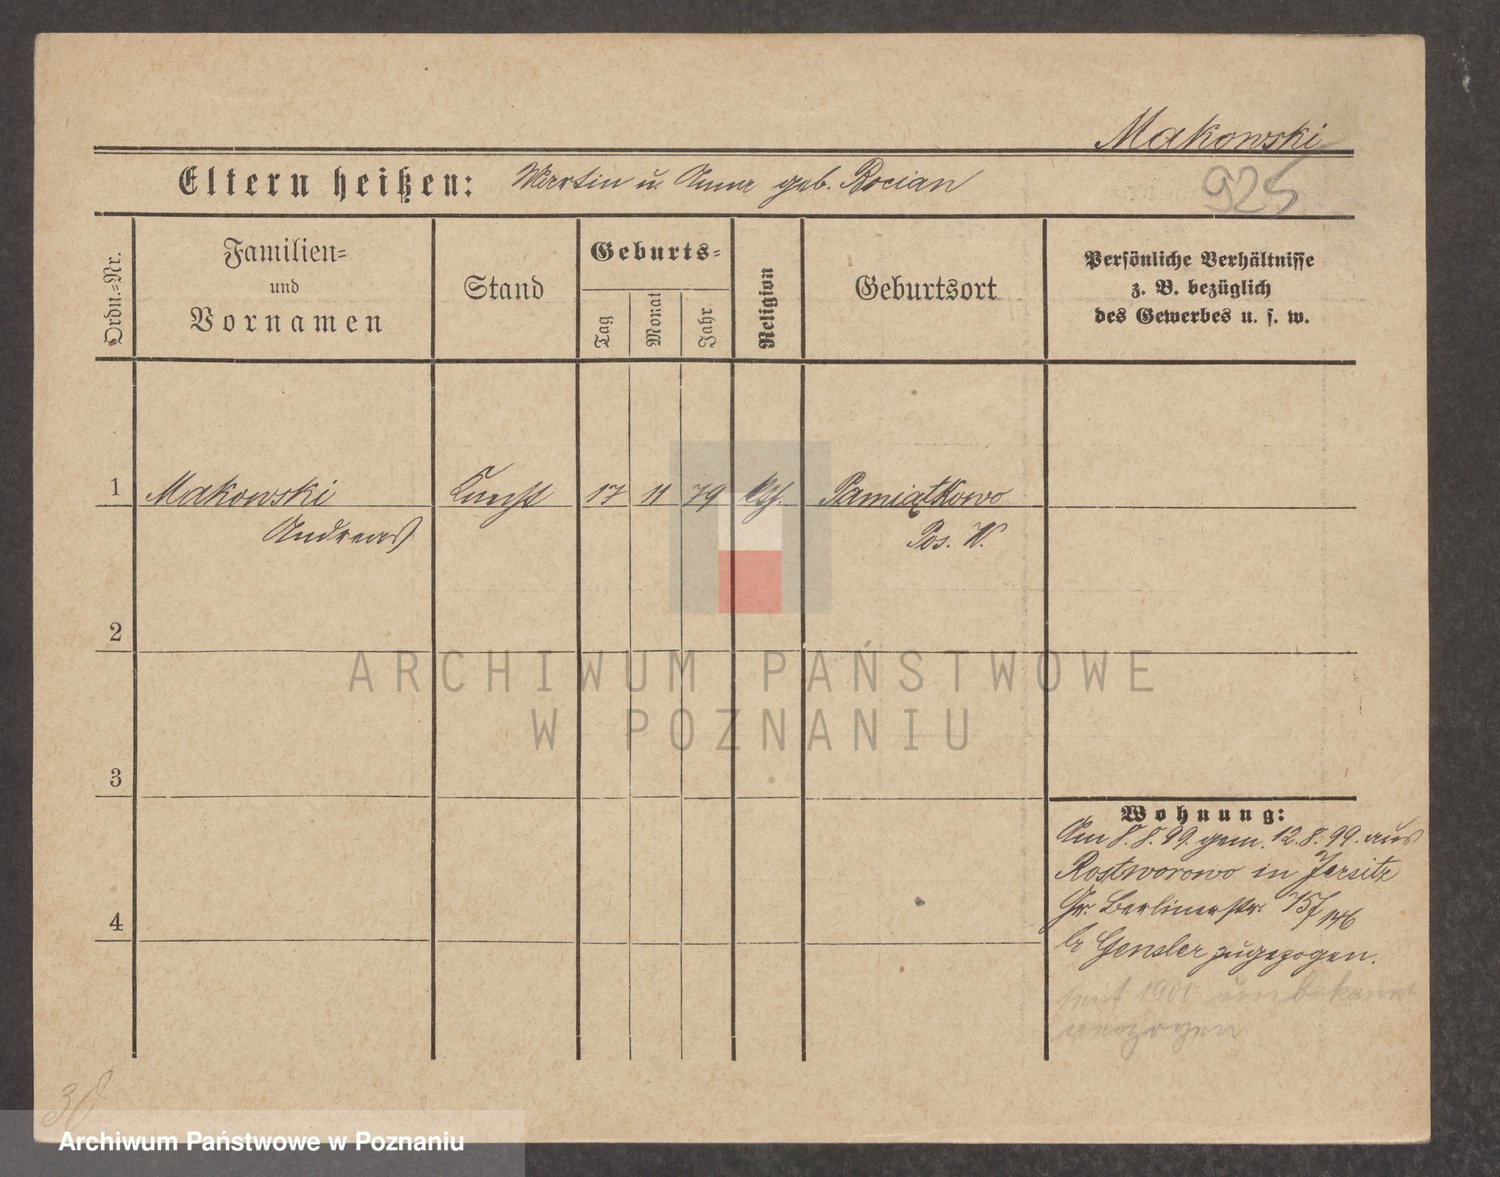 Makowski
925
Eltern heißen: Martin u. Anna geb. Rocian
Ordn.-Nr.
Familien-
und
Vornamen
Stand
Geburts-
Tag
Monat
Jahr
Religion
Geburtsort
Persönliche Verhältnisse
z. B. bezüglich
des Gewerbes u. s. w.
1 Makowski Knecht 17 11 79 kth. Pamiątkowo
Andreas Pos. W.
2
3
4
Wohnung:
Am 8.8.99. gem. 12.8.99. aus
Rostworowo in Jersitz
Gr. Berlinerstr.
b. Gensler zugezogen.
seit 1900 unbekannt
verzogen
ARCHIWUM PAŃSTWOWE
W POZNANIU
Archiwum Państwowe w Poznaniu